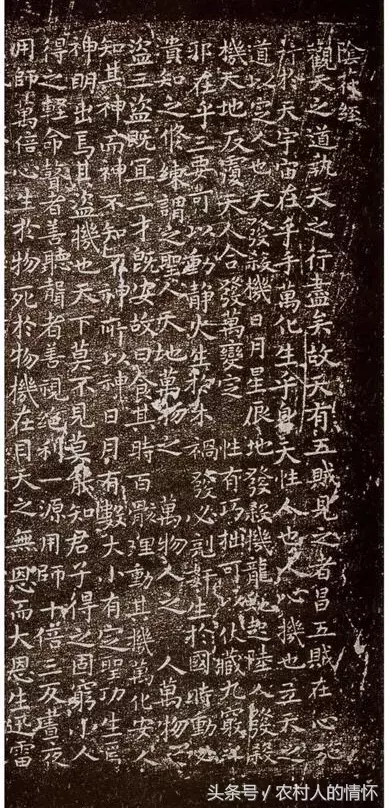 陰符經
觀天之道執天之行盡矣故天有五賊見之者昌五賊在心施
行於天宇宙在乎手萬化生乎身天性人也人心機也立天之
道以定人也天發殺機日月星辰地發殺機龍虵起陸人發殺
機天地反覆天人合發萬變定性有巧拙可以伏藏九竅之
邪在乎三要可以動靜火生於木禍發必剋奸生於國時動必
知之修練謂之聖人天地萬物之萬物人之人萬物之
盜三盜既宜三才既安故曰食其時百骸理動其機萬化安人
知其神而神不知不神所以神日月有數大小有定聖功生焉
神明出焉其盜機也天下莫不見莫能知君子得之固窮小人
得之輕命瞽者善聽聾者善視絕利一源用師十倍三反晝夜
用師萬倍心生於物死於物機在目天之無恩而大恩生迅雷
头条号 / 农村人的情怀